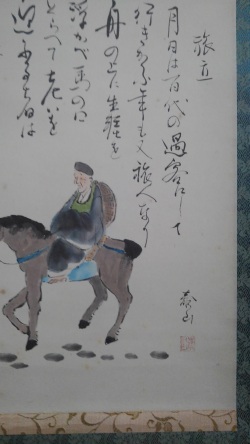 旅立
月日は百代の過客にして
行きかふ年も又旅人なり
舟の上に生涯を
浮かべ馬の口
とらへて老いを
迎ふる者は
泰山